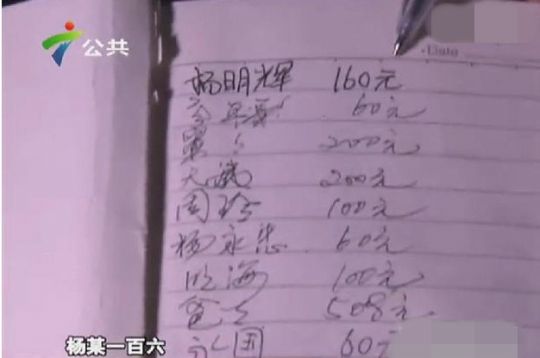 公共
Date
杨明辉 160元
60元
200元
天斌 200元
周玲 100元
杨永忠 60元
海 100元
爸爸 508元
国 60元
杨某一百六